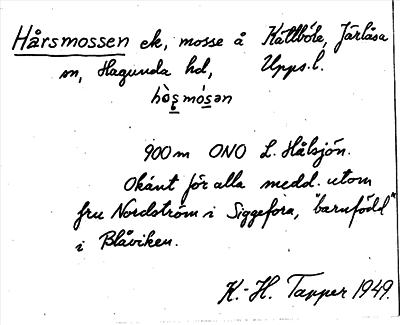 Hårsmossen ek, mosse å Kättbole, Järlåsa
sn, Hagunda hd, Upps.l.
hò̀s̲mós̲ən
900 m ONO L. Hålsjön.
Okänt för alla medd. utom
fru Nordström i Siggefora, "barnfödd"
i Blåviken.
K.-H. Tapper 1949.